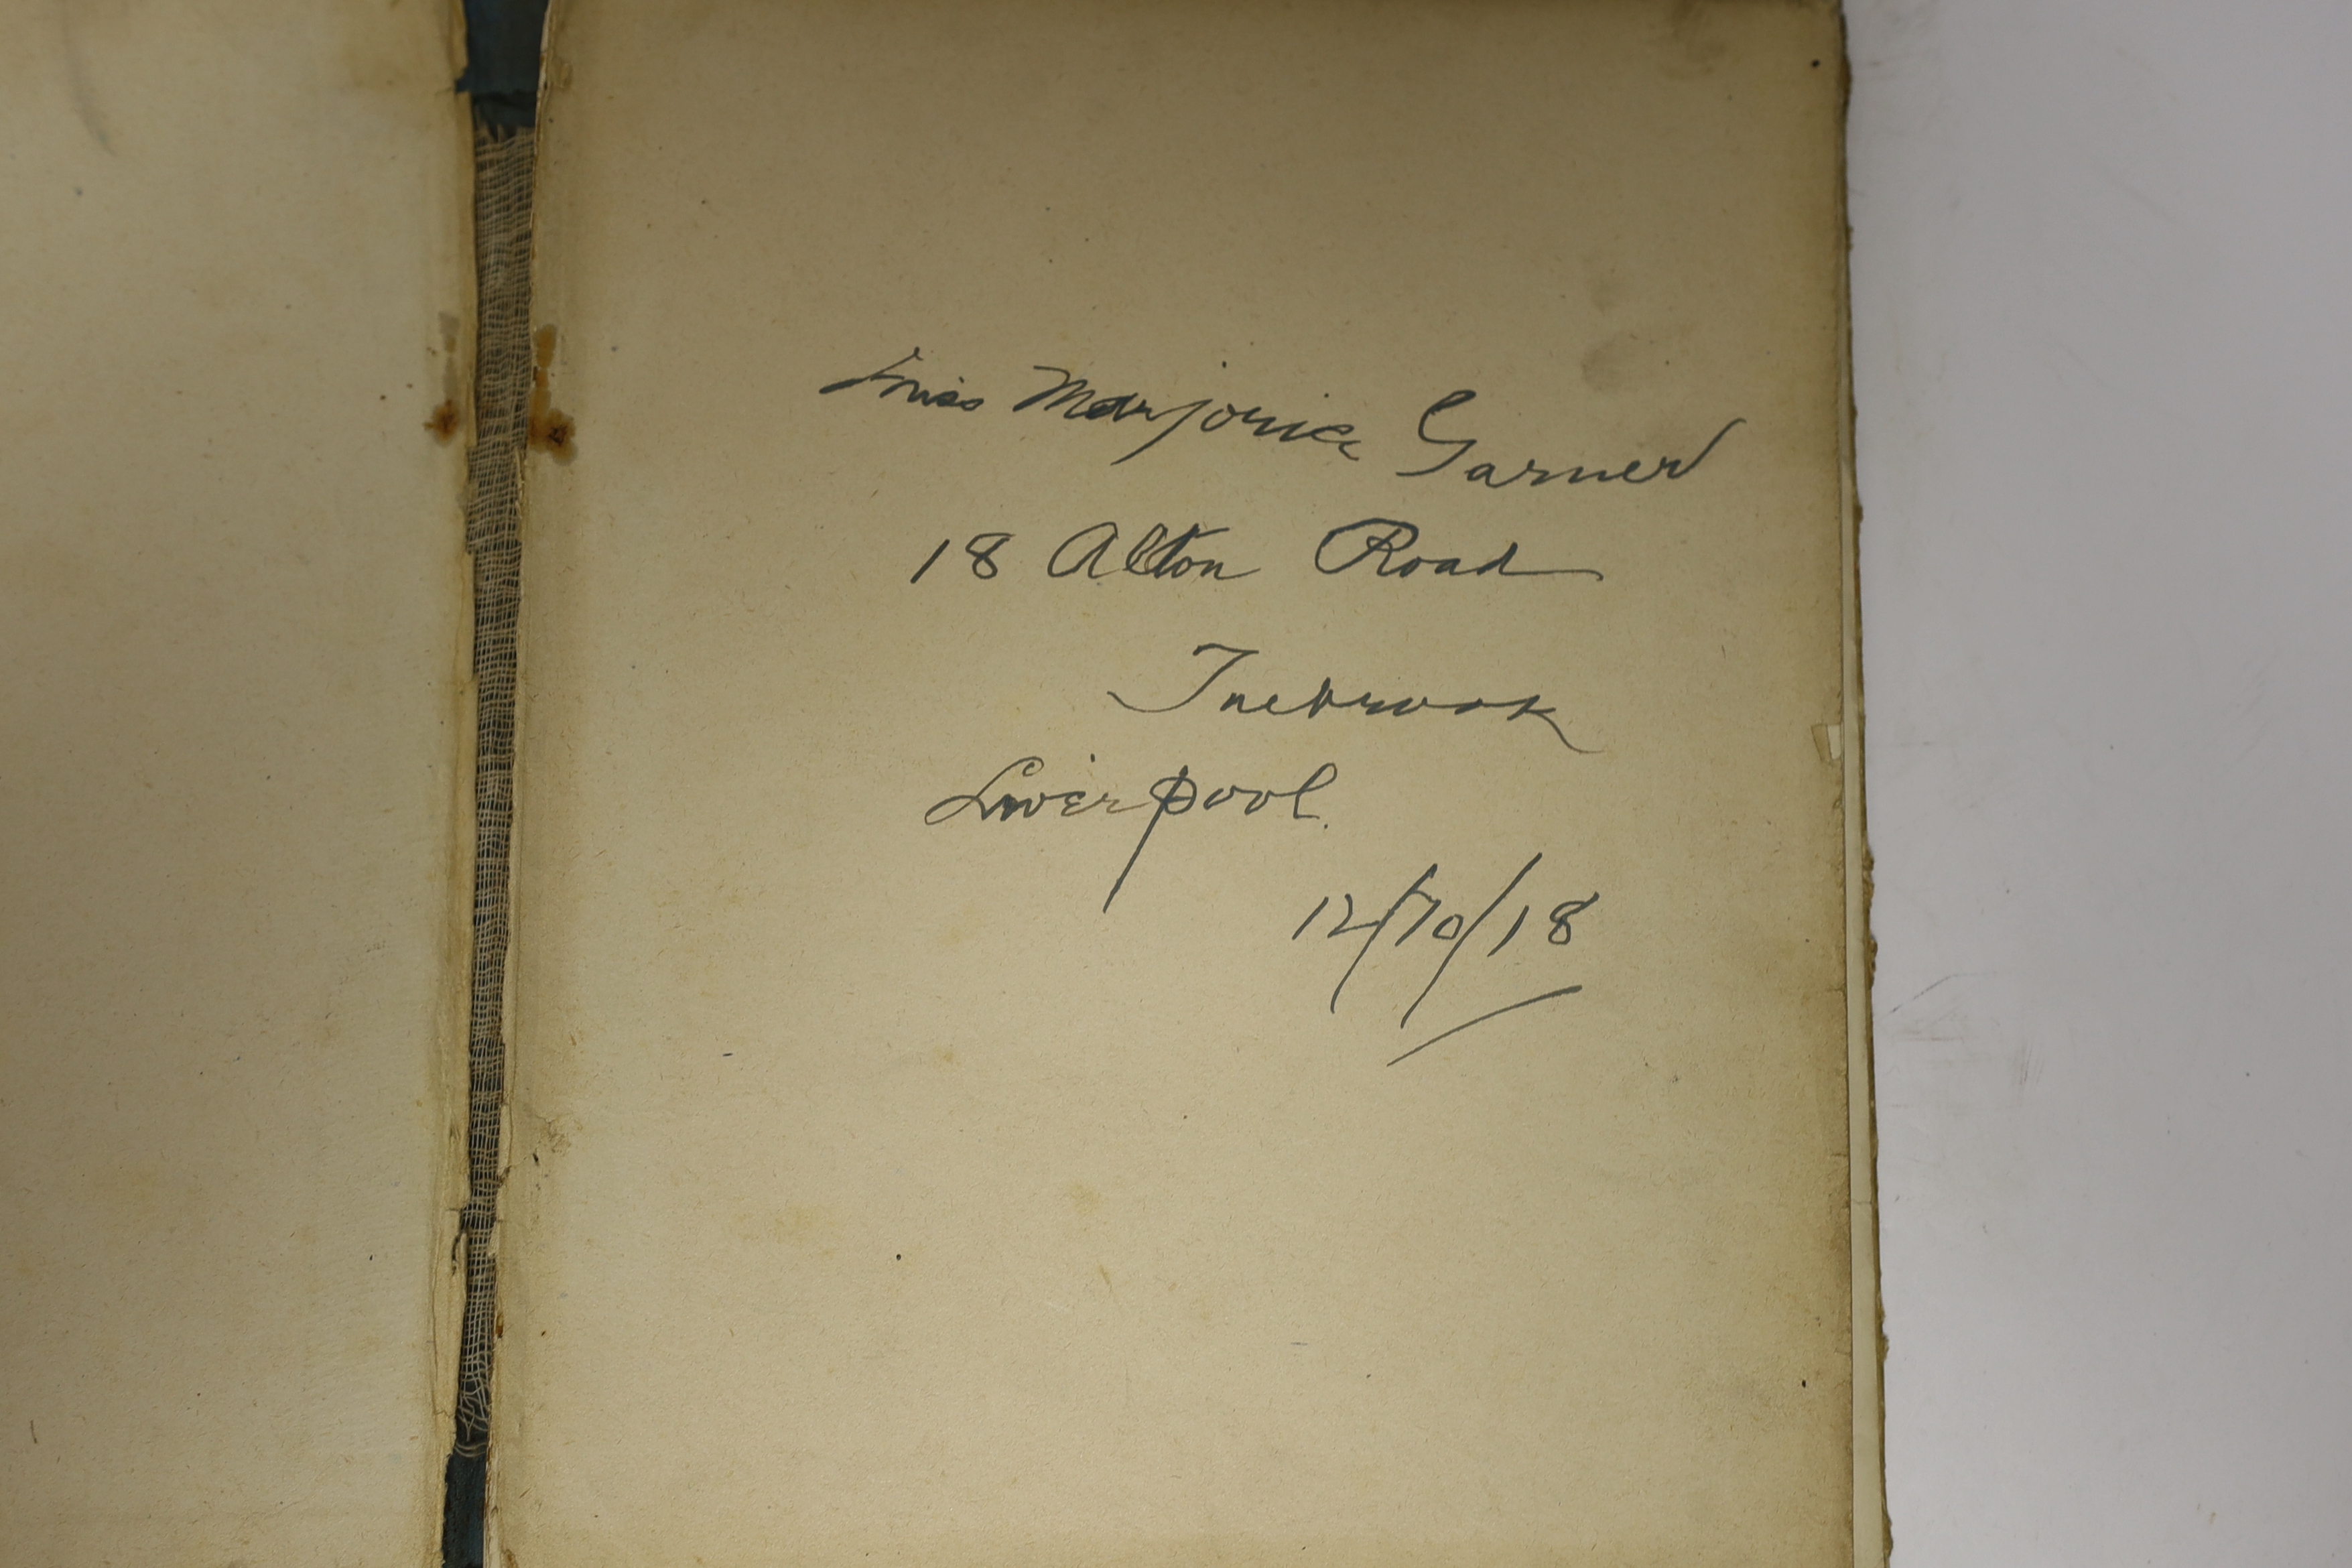 Miss Marjorie Garner
18 Alton Road
Tuebrook
Liverpool.
12/10/18